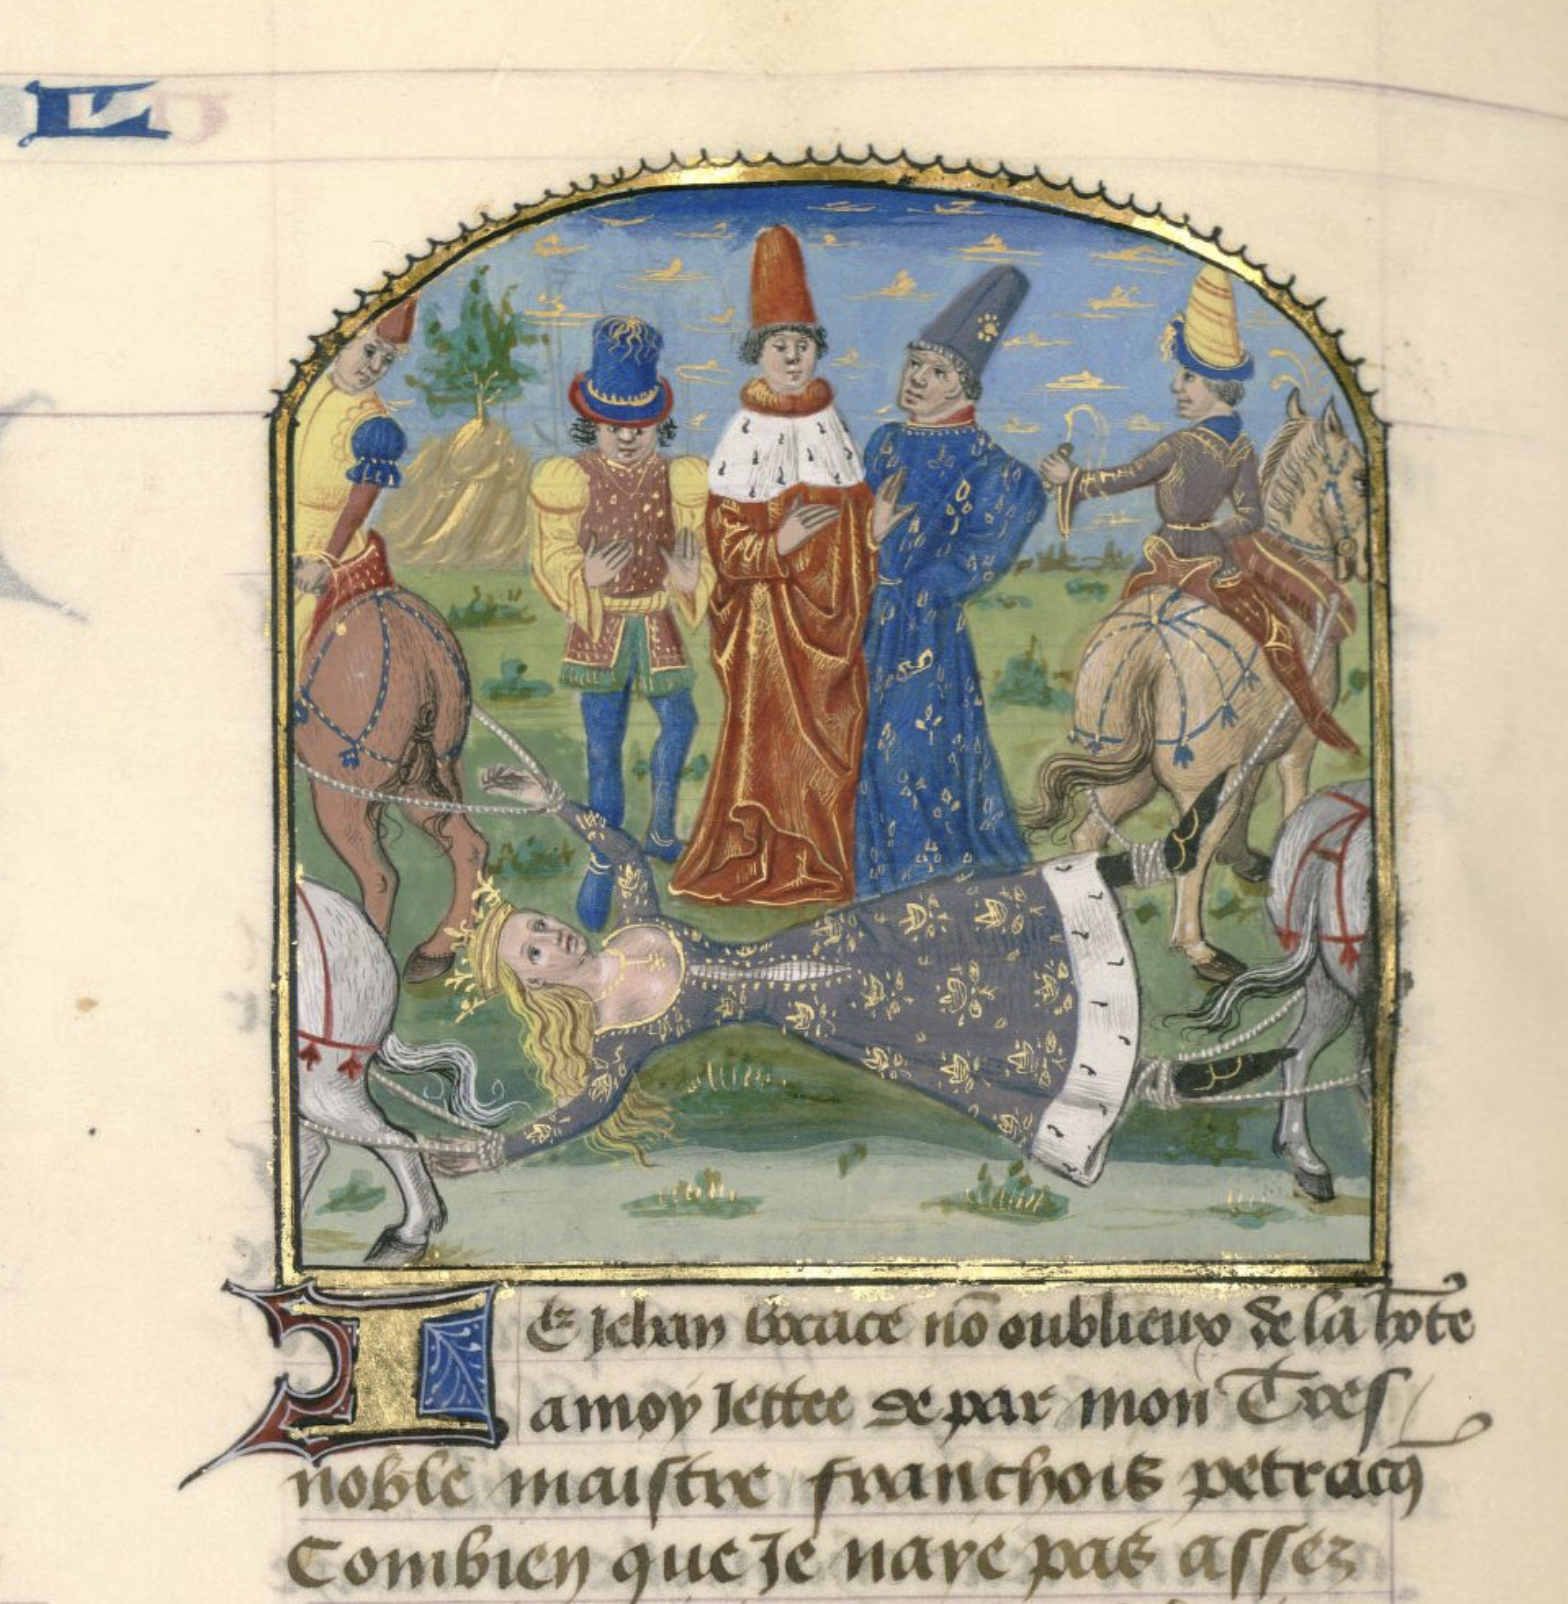 L
Et Jehan bocace nō oublieux de la hōte
a moy Jettee de par mon Tres
noble maistre franchois petracq
Combien que Je naye pas assez